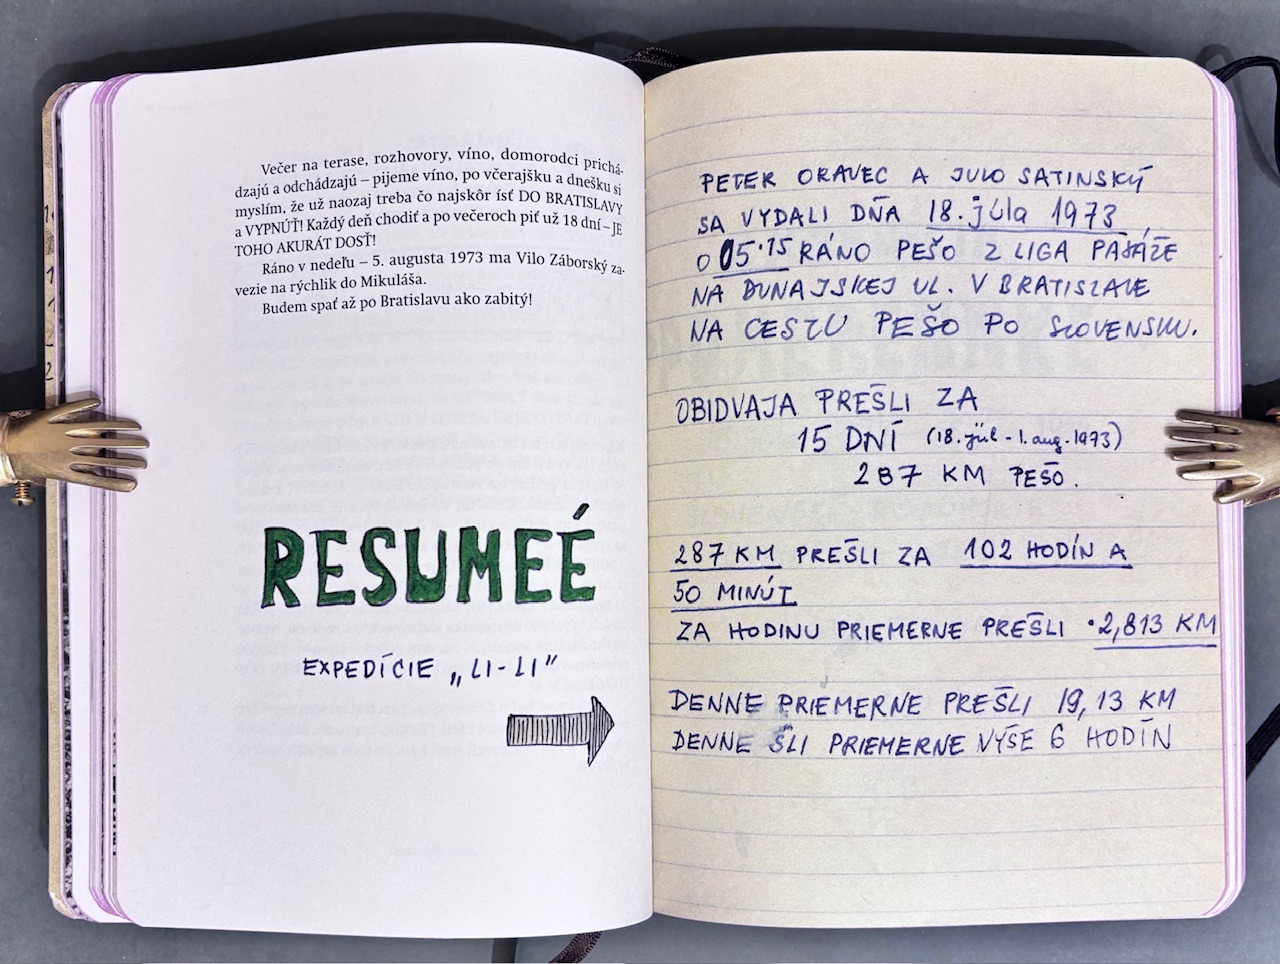 Večer na terase, rozhovory, víno, domorodci prichá-
dzajú a odchádzajú – pijeme víno, po včerajšku a dnešku si
myslím, že už naozaj treba čo najskôr ísť DO BRATISLAVY
a VYPNÚŤ! Každý deň chodiť a po večeroch piť už 18 dní – JE
TOHO AKURÁT DOSŤ!
Ráno v nedeľu – 5. augusta 1973 ma Vilo Záborský za-
vezie na rýchlik do Mikuláša.
Budem spať až po Bratislavu ako zabitý!
RESUMEÉ
EXPEDÍCIE „LI-LI"
PETER ORAVEC A JULO SATINSKÝ
SA VYDALI DŇA 18. júla 1973
O 05.15 RÁNO PEŠO Z LIGA PASÁŽE
NA DUNAJSKEJ UL. V BRATISLAVE
NA CESTU PEŠO PO SLOVENSKU.
OBIDVAJA PREŠLI ZA
15 DNÍ (18. júl - 1. aug. 1973)
287 KM PEŠO.
287 KM PREŠLI ZA 102 HODÍN A
50 MINÚT
ZA HODINU PRIEMERNE PREŠLI 2,813 KM
DENNE PRIEMERNE PREŠLI 19,13 KM
DENNE ŠLI PRIEMERNE VYŠE 6 HODÍN